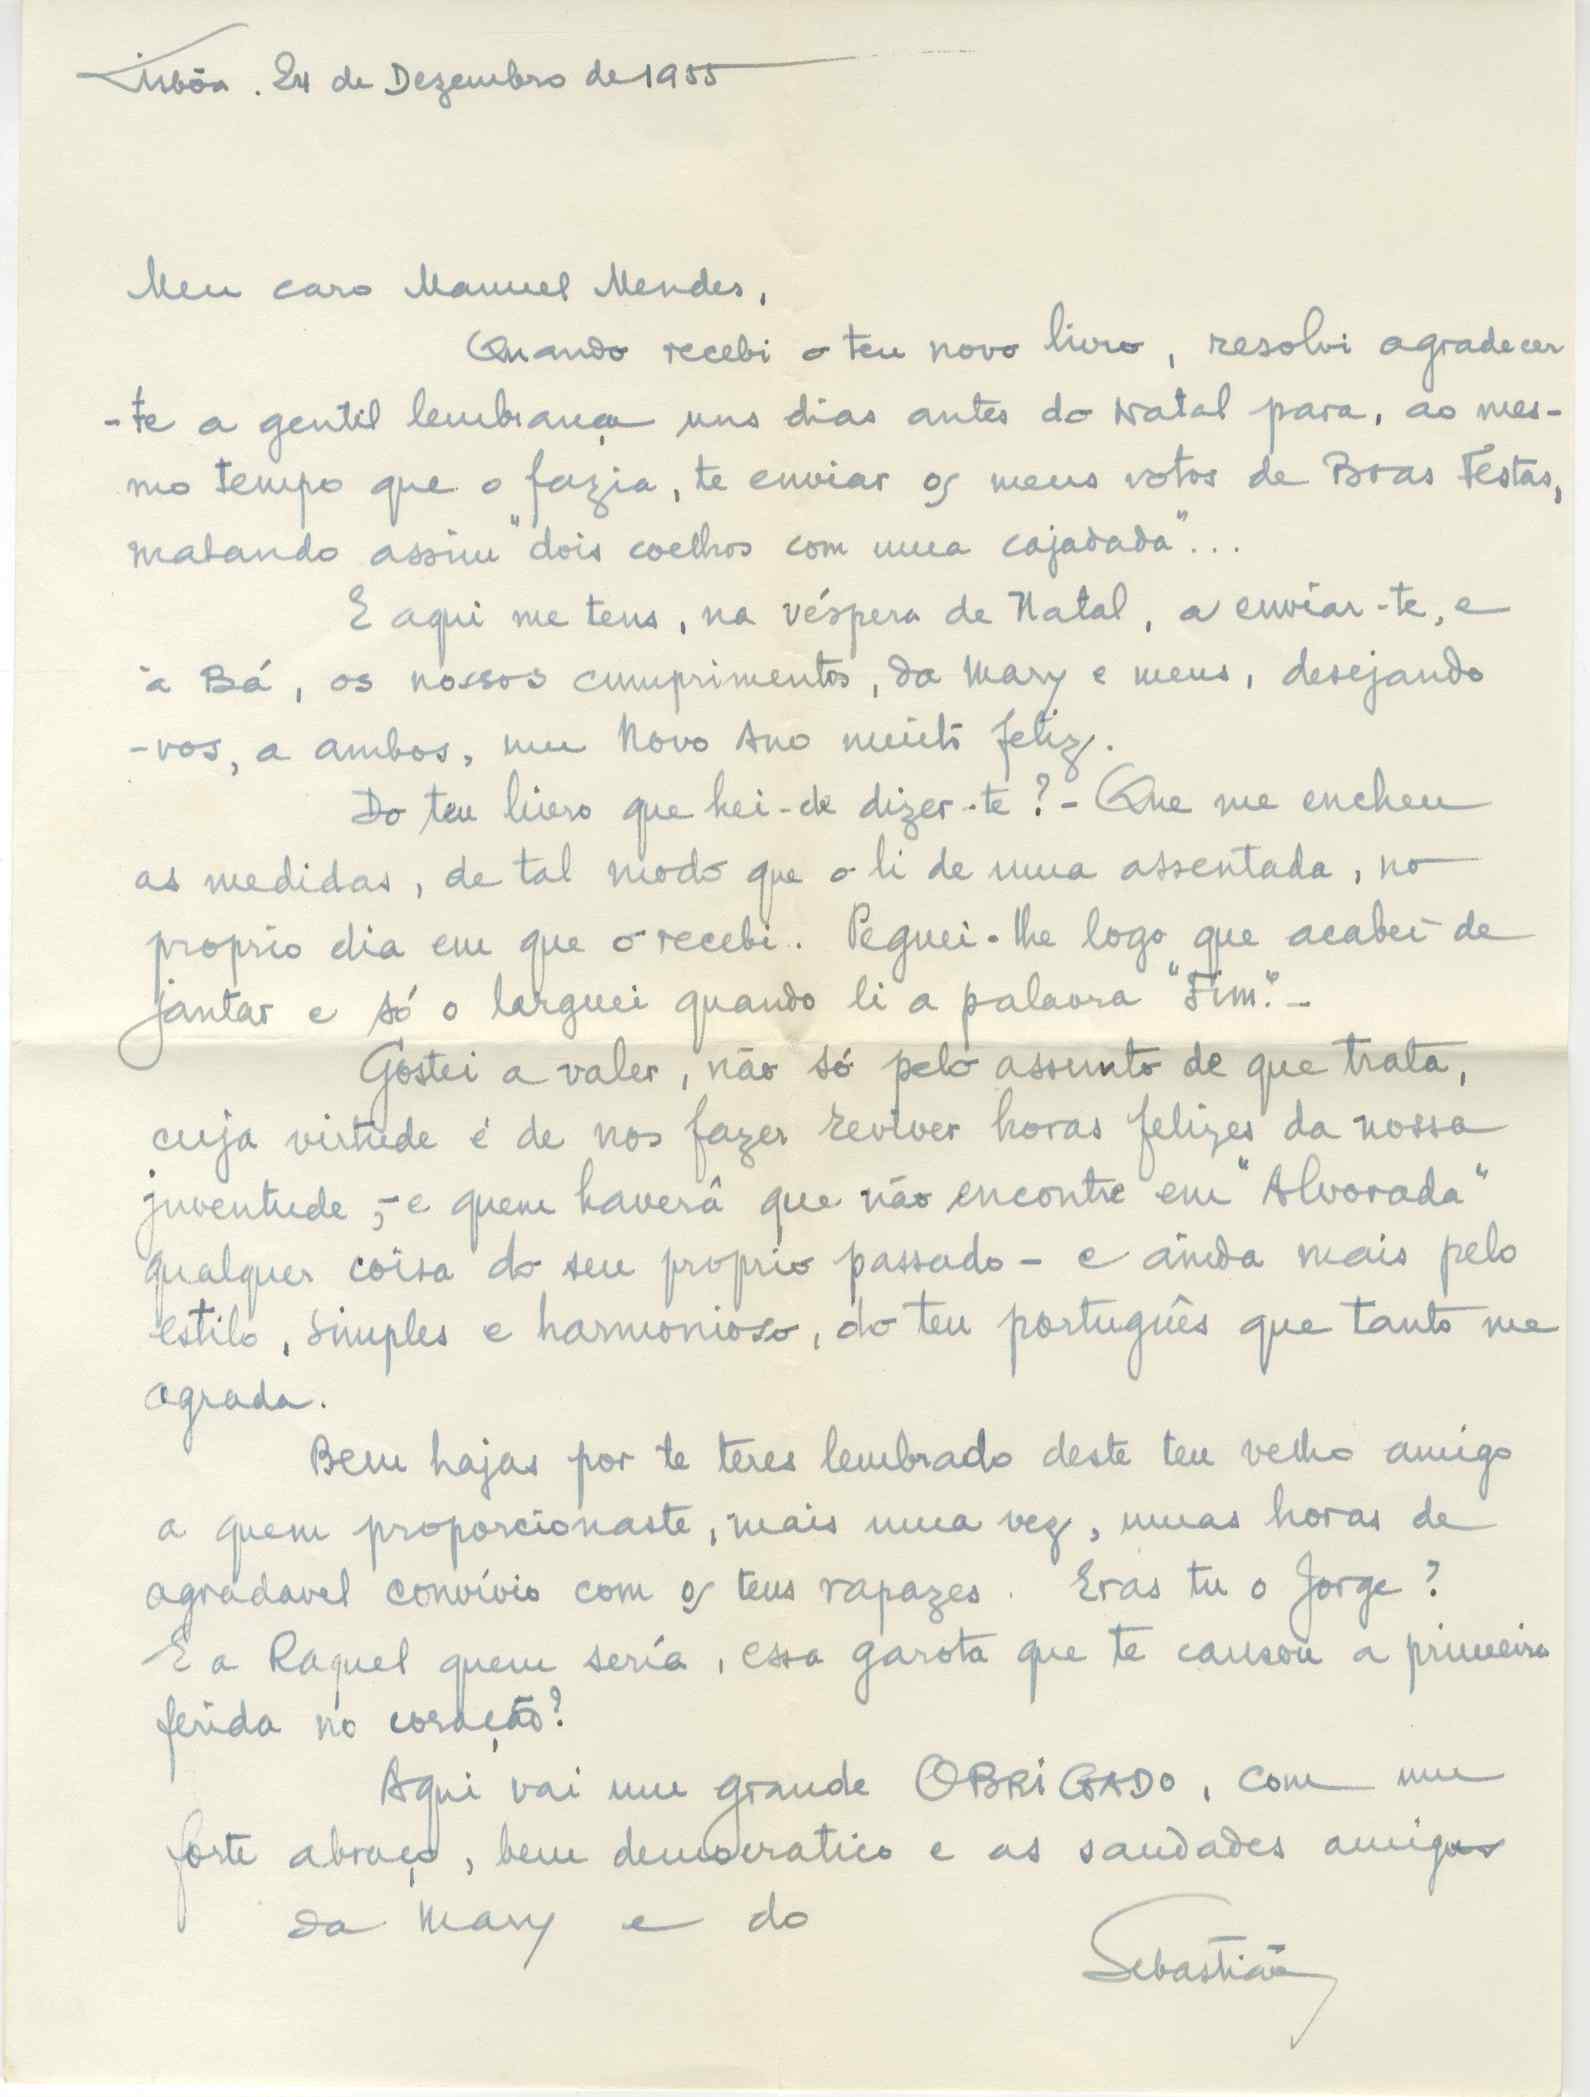 Lisbôa. 24 de Dezembro de 1955
Meu caro Manuel Mendes,
Quando recebi o teu novo livro, resolvi agradecer
-te a gentil lembrança uns dias antes do Natal para, ao mes-
mo tempo que o fazia, te enviar os meus votos de Boas Festas,
matando assim "dois coelhos com uma cajadada"...
E aqui me tens, na véspera de Natal, a enviar-te, e
à Bá, os nossos cumprimentos, da Mary e meus, desejando
-vos, a ambos, um Novo Ano muito feliz.
Do teu livro que hei-de dizer-te? - Que me encheu
as medidas, de tal modo que o li de uma assentada, no
proprio dia em que o recebi. Peguei-lhe logo que acabei de
jantar e só o larguei quando li a palavra "Fim". -
Gostei a valer, não só pelo assunto de que trata,
cuja virtude é de nos fazer reviver horas felizes da nossa
juventude, - e quem haverá que não encontre em "Alvorada"
qualquer coisa do seu proprio passado - e ainda mais pelo
estilo, simples e harmonioso, do teu português que tanto me
agrada.
Bem hajas por te teres lembrado deste teu velho amigo
a quem proporcionaste, mais uma vez, umas horas de
agradavel convívio com os teus rapazes. Eras tu o Jorge?
E a Raquel quem sería, essa garota que te causou a primeira
ferida no coração?
Aqui vai um grande OBRiGADO, com um
forte abraço, bem democratico e as saudades amigas
da Mary e do
Sebastião